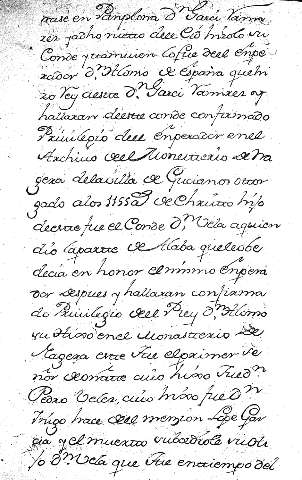 trase en Pamplona Dⁿ Garci Ramire
res
Conde y tamuien lo fue del Enpe
rador Dⁿ Alonso de España que hi
zo Rey a este Dⁿ Garci Ramires y
hallaran deeste conde confirmado
Privilegio del Enperador en el
Archivo del Monesterio de Na
gera de la villa de Gucianos otor
gado años 1155 as de Christo hijo
de este fue el Conde Dⁿ Vela a quien
dio la parte de Alaba que leobe
decia en honor el mismo Enpera
dor despues y hallaran confirma
do Privilegio del Rey Dⁿ Alonso
su Hixo en el Monasterio de
Nagera este fue el primer Se
ñor de oñatte cuio hixo fue Dⁿ
Pedro Veles, cuio hixo fue Dⁿ
Iñigo hace del menzion Lope Gar
cia, y el muerto subcediole su hi
jo Dⁿ Vela que fue en tiempo del